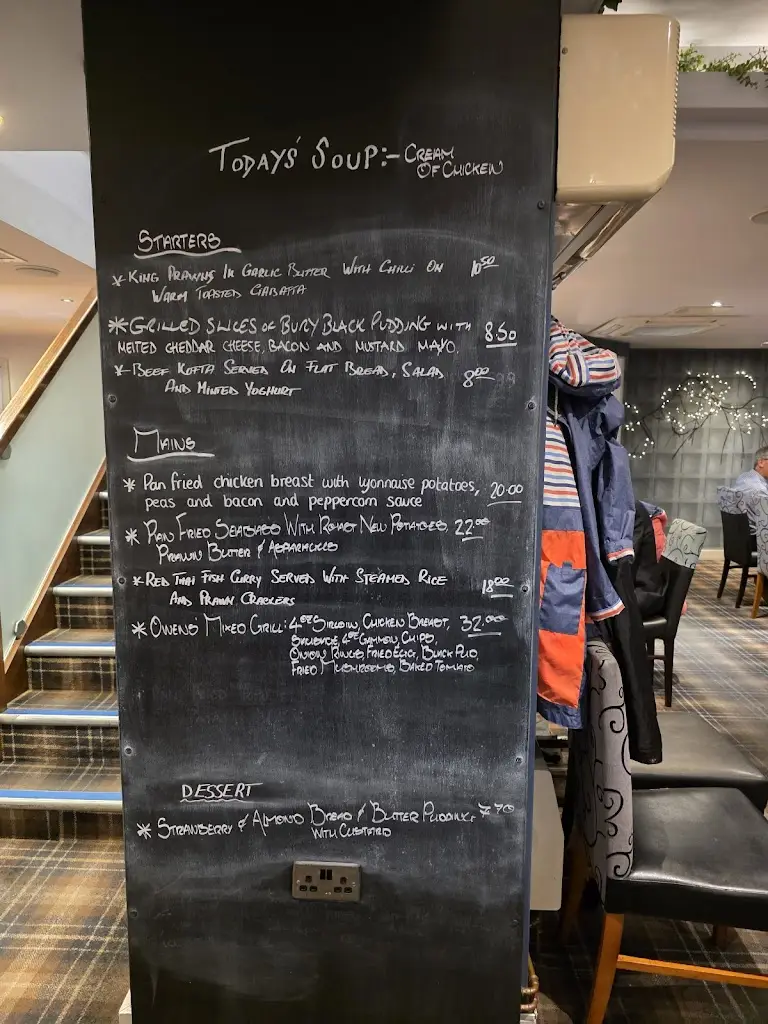 TODAY'S SOUP:- CREAM
OF CHICKEN
STARTERS
* KING PRAWNS IN GARLIC BUTTER WITH CHILLI ON 10.50
WARM TOASTED CIABATTA
* GRILLED SLICES OF BURY BLACK PUDDING WITH
MELTED CHEDDAR CHEESE, BACON AND MUSTARD MAYO. 8.50
* BEEF KOFTA SERVED ON FLAT BREAD, SALAD 8.00
AND MINTED YOGHURT
MAINS
* Pan fried chicken breast with lyonnaise potatoes, 20.00
peas and bacon and peppercorn sauce
* PAN FRIED SEABASS WITH ROAST NEW POTATOES, 22.00
PRAWN BUTTER &
* RED THAI FISH CURRY SERVED WITH STEAMED RICE 18.00
AND PRAWN CRACKERS
* OWENS MIXED GRILL: 4oz SIRLOIN, CHICKEN BREAST, 32.00
SAUSAGE, 4oz GAMMON, CHIPS,
ONION RINGS, FRIED EGG, BLACK PUD,
FRIED MUSHROOMS, BAKED TOMATO
DESSERT
* STRAWBERRY & ALMOND BREAD & BUTTER PUDDING 7.70
WITH CUSTARD